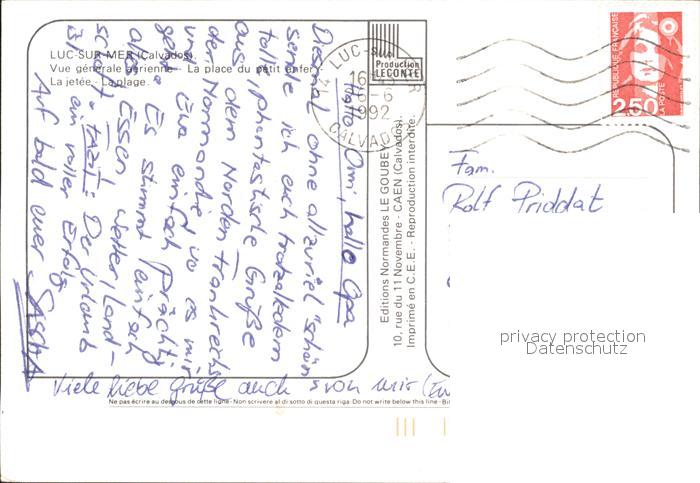 LUC-SUR-MER (Calvados).
Vue générale aérienne - La place du petit enfer
La jetée - La plage.
Production
LECONTE
LUC-sur-MER
16 H
6
1992
CALVADOS
REPUBLIQUE FRANÇAISE
2,50
LA POSTE
Editions Normandes LE GOUBEY
10, rue du 11 Novembre - CAEN (Calvados).
Imprimé en C.E.E. - Reproduction interdite.
Hallo Omi, hallo Opa
Diesmal ohne allzuviel "schön
sende ich euch trotzalledem
toll, phantastische Grüße
aus dem Norden Frankreichs
der Normandie, wo es mir
und Eva einfach prächtig
geht. Es stimmt einfach
alles: Essen, Wetter, Land-
schaft. FAZIT: Der Urlaub
ist ein voller Erfolg
Auf bald euer SASCHA
Viele liebe Grüße auch von mir
Fam.
Rolf Priddat
privacy protection
Datenschutz
Ne pas écrire au dessous de cette ligne - Non scrivere al di sotto di questa riga - Do not write below this line - Bit